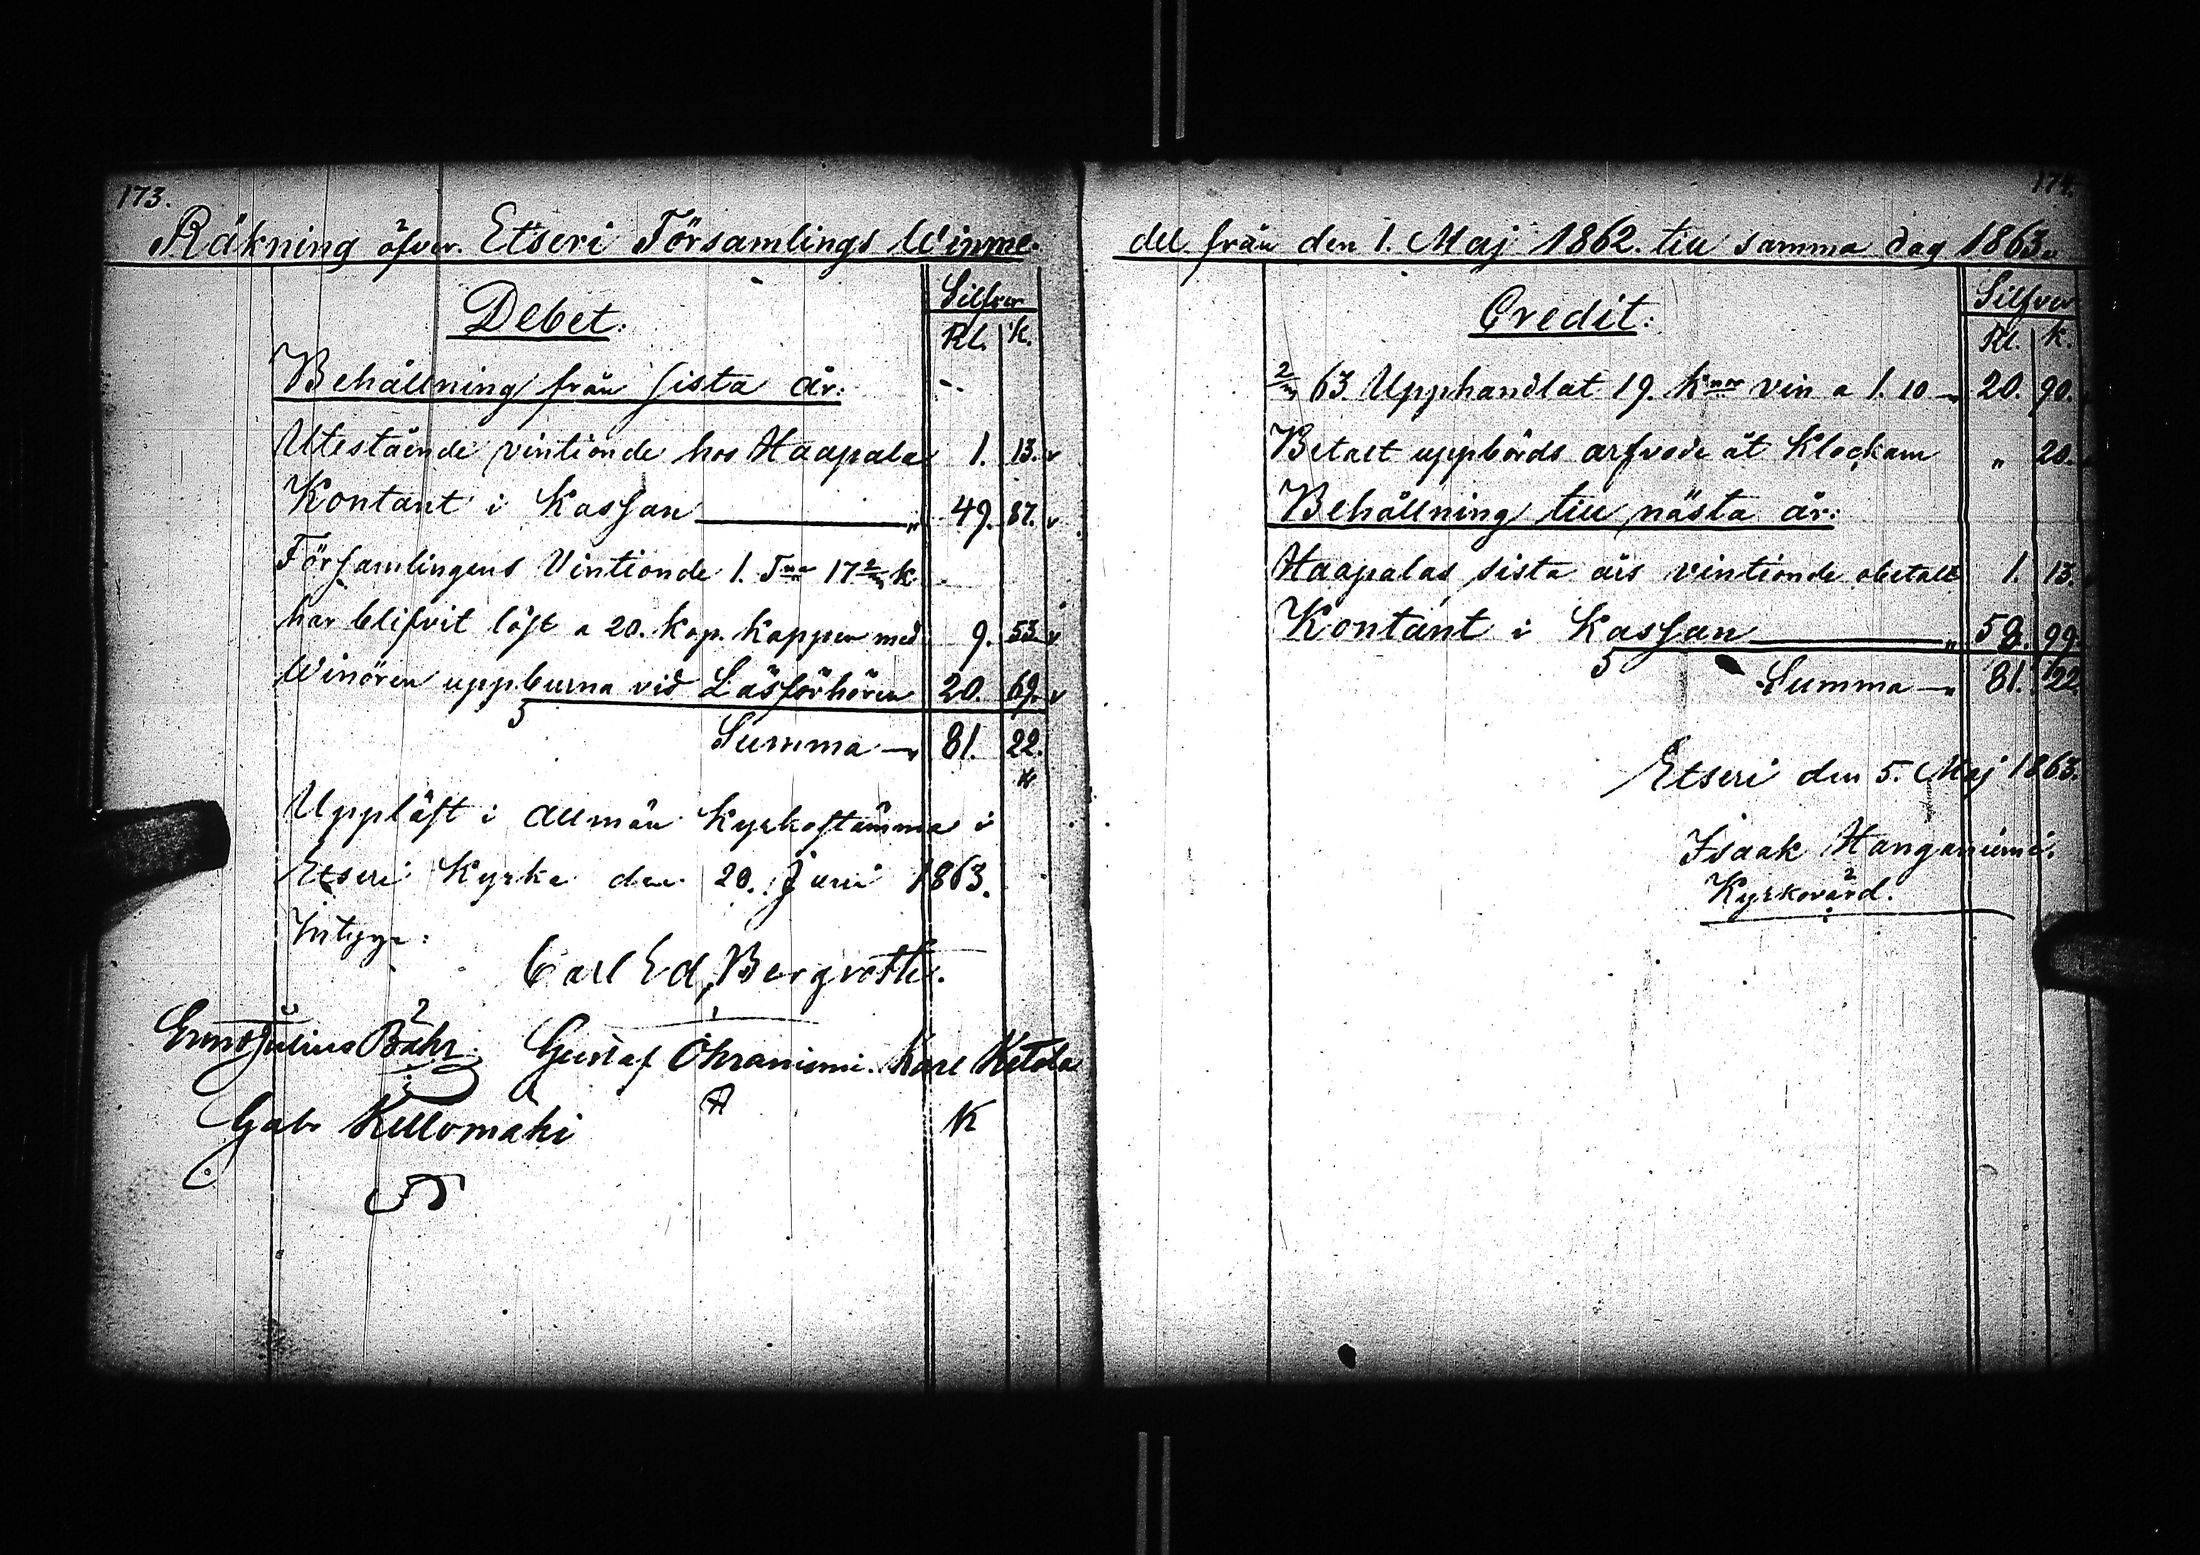 173.
Räkning öfver Etseri Församlings Winme-
Debet:
Silfver
Rl. k.
Behållning från sista år:
Utestående vintionde hos Haapala 1. 13.
Kontant i Kassan 49. 87.
Församlingens Vintionde 1. Tna 17 k
har blifvit löst a 20. kop. kappen med 9. 53
Winören uppburna vid Läsförhören 20. 69.
Summa 81. 22.
Uppläst i allmän Kyrkostämma i
Etseri Kyrka den 20. Juni 1863.
Intyga:
Carl Ed. Bergroth.
Julius Bähr. Gustaf Ohraniemi. Karl Ketola
K
Gab. Kellomäki
174.
del från den 1. Maj 1862. till samma dag 1863.
Credit:
Silfver
Rl. k.
63. Upphandlat 19. knor vin a 1. 10 20. 90.
Betalt uppbörds arfvode åt Klockarn " 20.
Behållning till nästa år:
Haapalas sista års vintionde obetalt 1. 13.
Kontant i Kassan 58. 99.
Summa 81. 22
Etseri den 5. Maj 1863.
Isaak Hanganiemi.
Kyrkovärd.